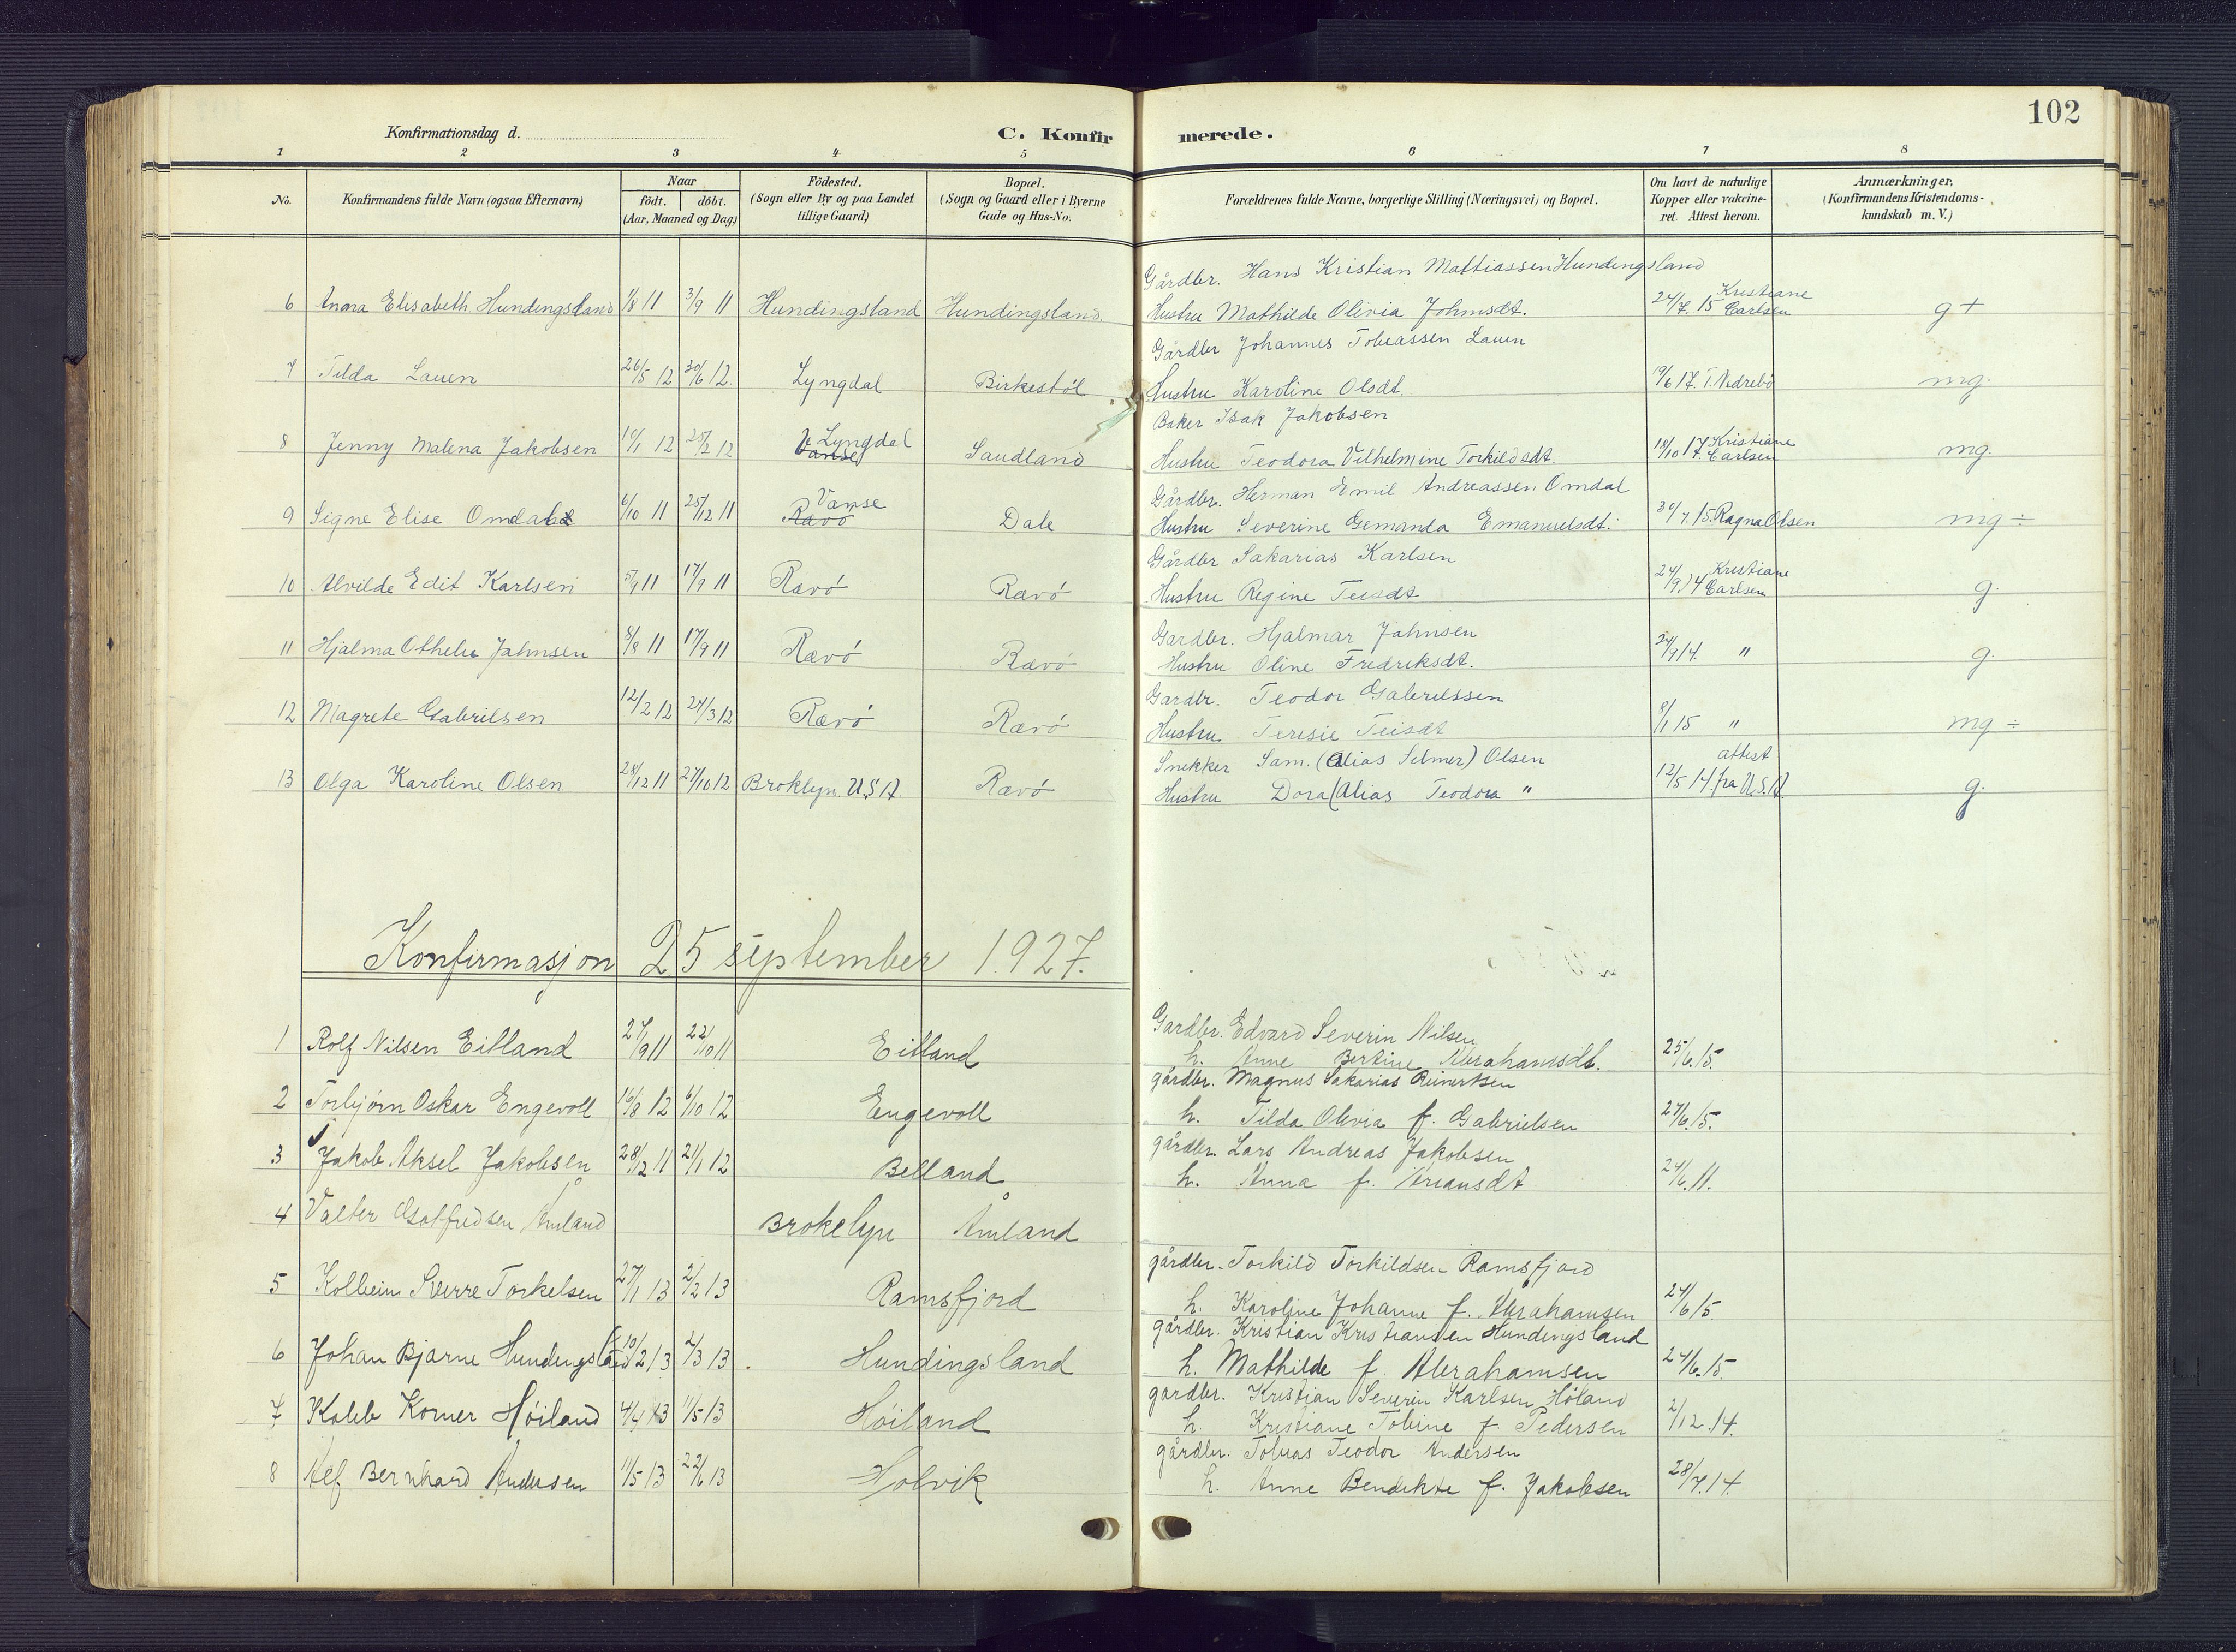 102
Konfirmationsdag d.
C. Konfirmerede.
1 2 3 4 5 6 7 8
No. Konfirmandens fulde Navn (ogsaa Efternavn) Naar födt. döbt. (Aar, Maaned og Dag) Födested. (Sogn eller By og paa Landet tillige Gaard) Bopæl. (Sogn og Gaard eller i Byerne Gade og Hus-No. Forældrenes fulde Navne, borgerlige Stilling (Næringsvei) og Bopæl. Om havt de naturlige Kopper eller vakcineret. Attest herom. Anmærkninger. (Konfirmandens Kristendomskundskab m. V.)
Gårdbr. Hans Kristian Mattiassen Hundingsland
6 Anna Elisabeth Hundingsland 1/8 11 3/9 11 Hundingsland Hundingsland. Hustru Mathilde Olivia Johnsdt. 24/7. 15 Kristiane Carlsen g +
Gårdbr Johannes Tobiassen Lauen
7 Tilda Lauen 26/5 12 30/6 12. Lyngdal Birkestøl Hustru Karoline Olsdt. 19/6 17. T. Nedrebø mg.
Baker Isak Jakobsen
8 Jenny Malena Jakobsen 10/1 12 25/2 12 Lyngdal Vanse Saudland Hustru Teodora Vilhelmine Torkildsdt. 18/10 17. Kristiane Carlsen mg.
Gårdbr. Herman Emil Andreassen Omdal
9 Signe Elise Omdal 6/10 11 25/12 11 Vanse Rævø Dale Hustru Severine Gemanda Emanuelsdt. 30/7. 15. Ragna Olsen mg ÷
Gårdbr Sakarias Karlsen
10 Alvilde Edit Karlsen 5/9 11 17/9 11 Rævø Rævø Hustru Regine Teisdt 24/9 14 Kristiane Carlsen g.
Gardbr. Hjalmar Jahnsen
11 Hjalma Othelie Jahnsen 8/8 11 17/9 11 Rævø Rævø Hustru Oline Fredriksdt. 24/9 14. " g.
Gardbr. Teodor Gabrielssen
12 Magrete Gabrilsen 12/2 12 24/3 12 Rævø Rævø Hustru Teresie Teisdt 8/1 15 " mg ÷
Snekker Sam. (Alias Selmer) Olsen
13 Olga Karoline Olsen 28/12 11 27/10 12 Broklyn. U.S.A. Rævø Hustru Dora (Alias Teodora " 12/5 14. attest fra U.S.A. g.
Konfirmasjon 25 september 1927.
Gardbr. Edvard Severin Nilsen
1 Rolf Nilsen Eitland 27/9 11 22/10 11 Eitland h. Anne Bertine Abrahamsdt. 25/6. 15.
gårdbr. Magnus Sakarias Reinertsen
2 Torbjørn Oskar Engevoll 16/8 12 6/10 12 Engevoll h. Tilda Olivia f. Gabrielsen 24/6. 15.
gårdbr. Lars Andreas Jakobsen
3 Jakob Aksel Jakobsen 28/12 11 21/1 12 Belland h. Anna f. Ariansdt 24/6. 11.
4 Valter Gotfredsen Åmland Brokelyn Åmland
gårdbr. Torkild Torkildsen Ramsfjord
5 Kolbein Sverre Torkelsen 27/1 13 2/2 13 Ramsfjord h. Karoline Johanne f. Abrahamsen 24/6 15.
gårdbr. Kristian Kristiansen Hundingsland
6 Johan Bjarne Hundingsland 10/2 13 2/3 13 Hundingsland h. Mathilde f. Abrahamsen 24/6. 15.
gardbr. Kristian Severin Karlsen Høiland
7 Kaleb Korner Høiland 4/4 13 11/5 13 Høiland h. Kristiane Tobine f. Pedersen 2/12. 14.
gårdbr. Tobias Teodor Andersen
8 Alf Bernhard Andersen 11/5 13 22/6 13 Holvik h. Anne Bendikte f. Jakobsen 28/7. 14